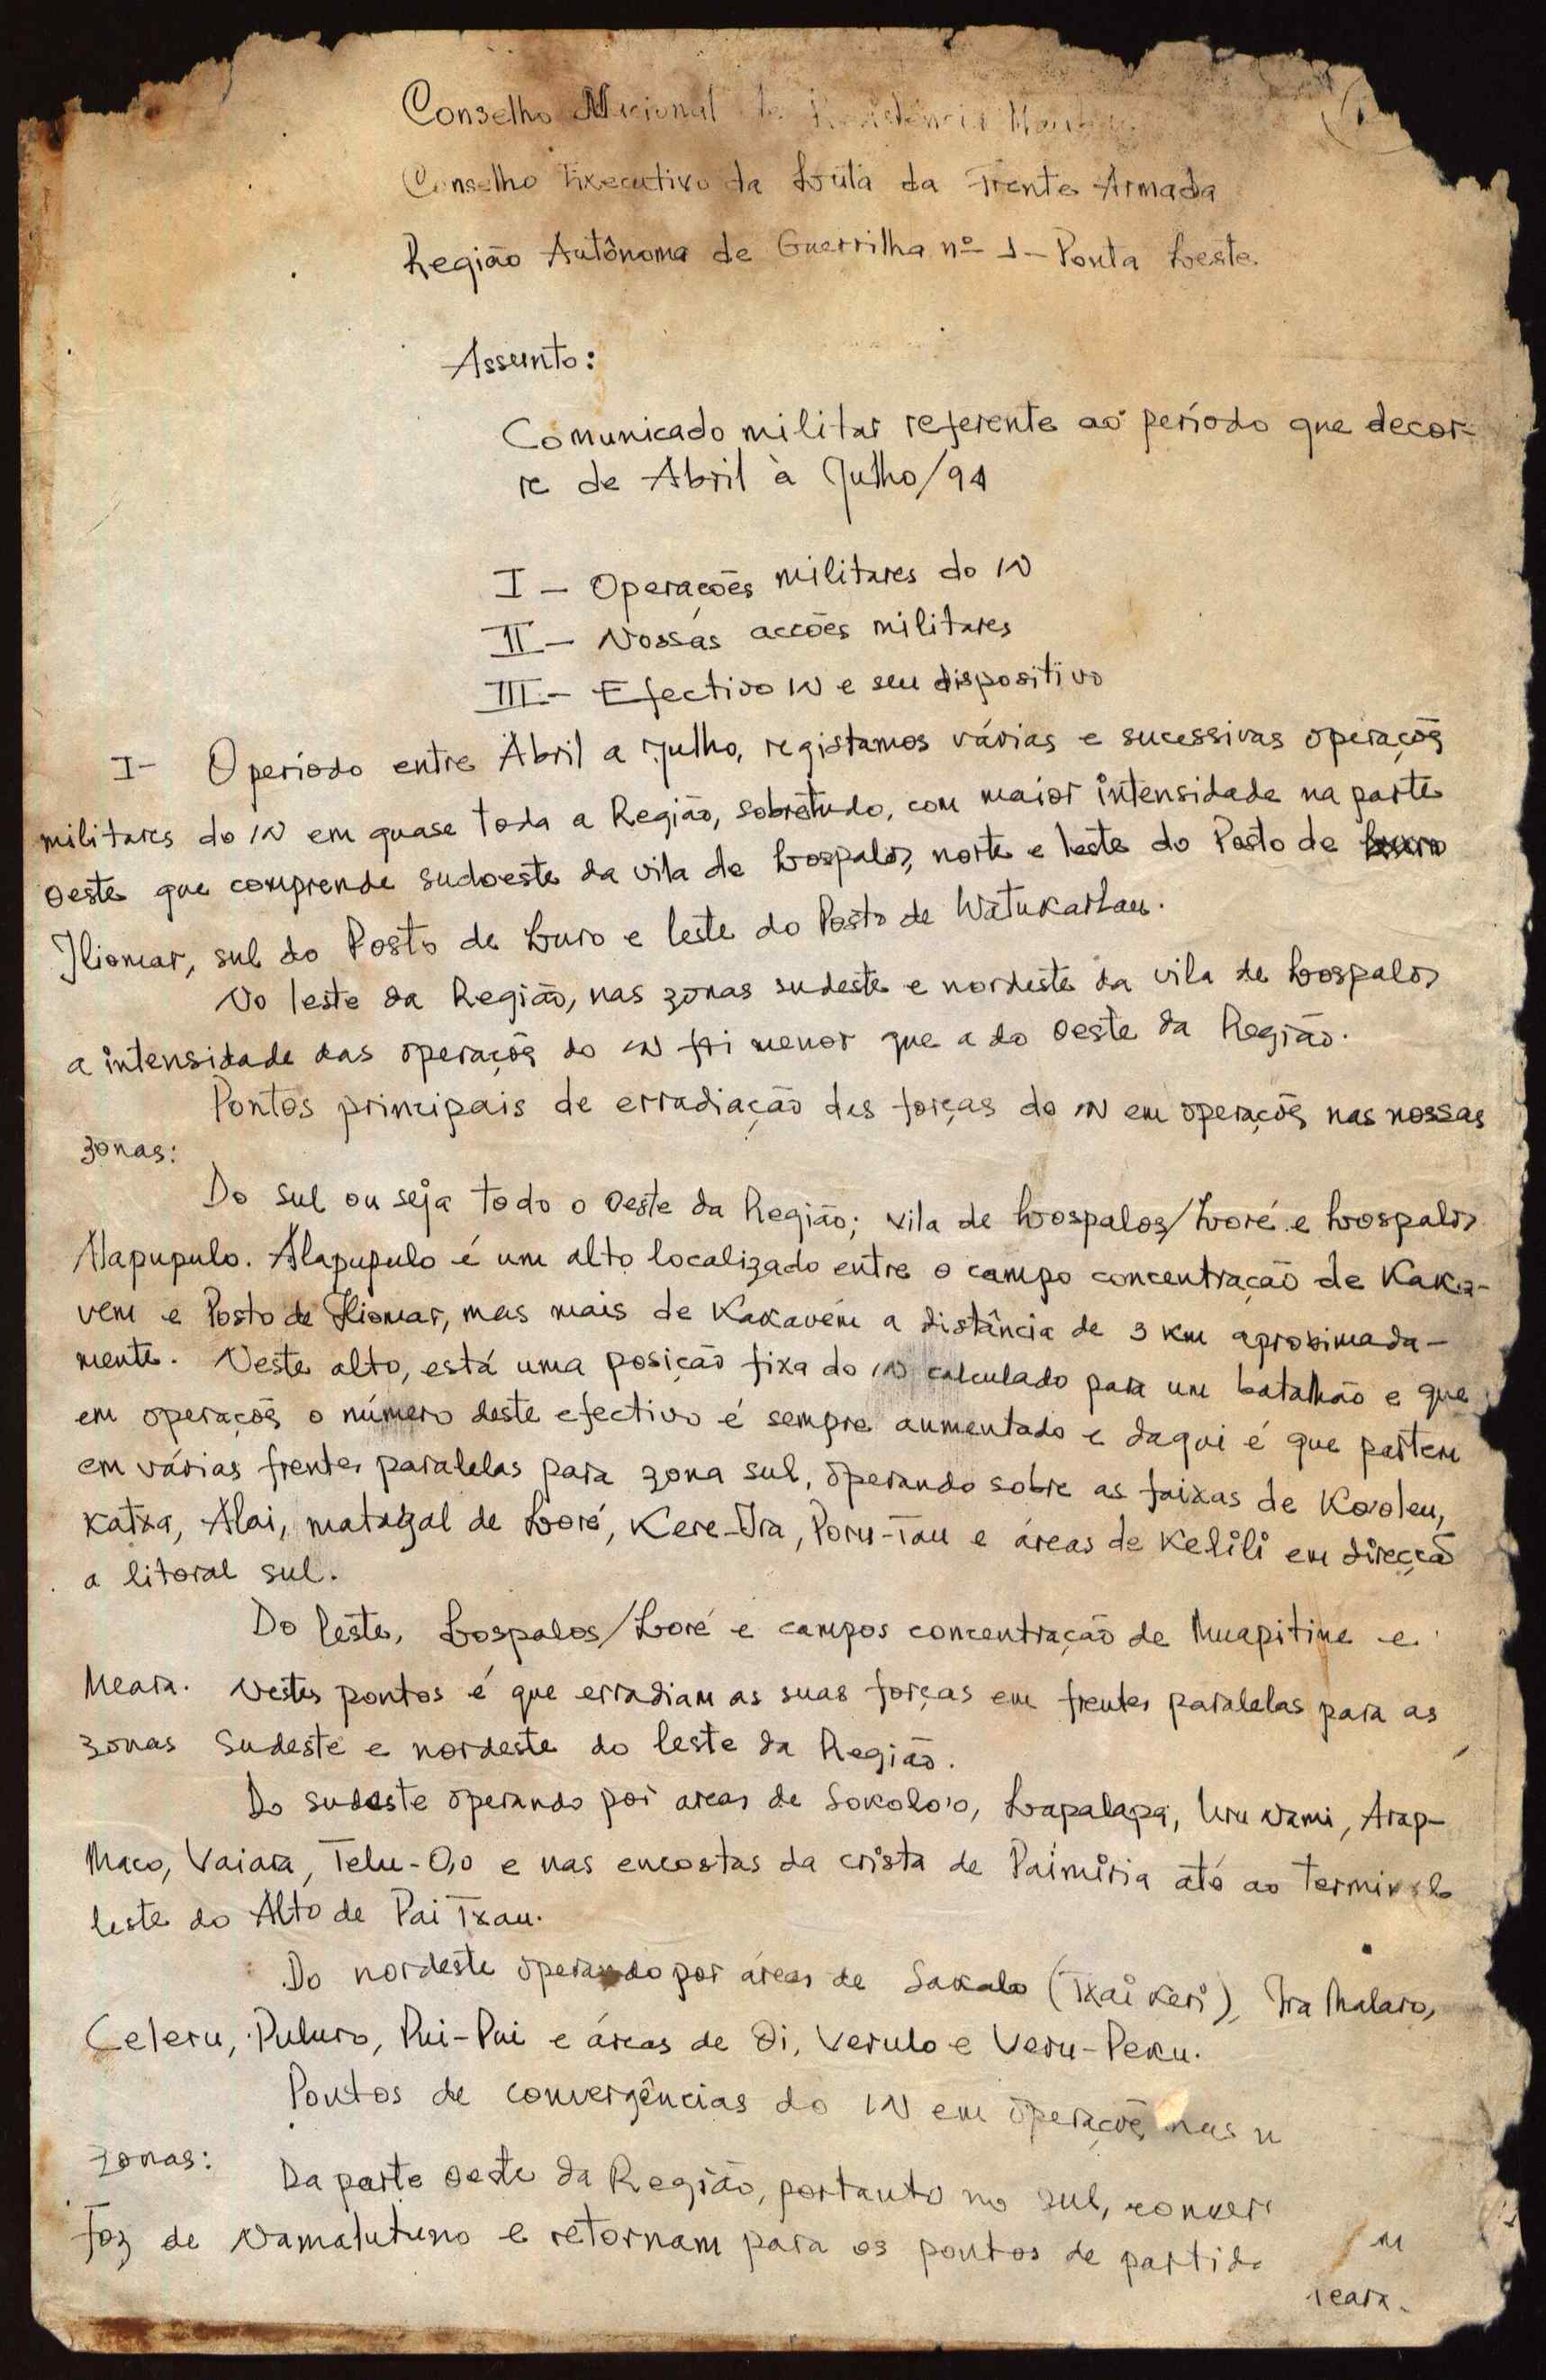 Conselho Nacional da Resistência
Conselho Executivo da Luta da Frente Armada
Região Autônoma de Guerrilha nº 1 - Ponta Leste.
Assunto:
Comunicado militar referente ao período que decor-
re de Abril à Julho/94
I - Operações militares do IN
II - Nossas acções militares
III - Efectivo IN e seu dispositivo
I- O período entre Abril a Julho, registamos várias e sucessivas operaçõs
militares do IN em quase toda a Região, sobretudo, com maior intensidade na parte
oeste que comprende sudoeste da vila de Lospalos, norte e leste do Posto de
Iliomar, sul do Posto de Luro e leste do Posto de Watukarlau.
No leste da Região, nas zonas sudeste e nordeste da vila de Lospalos
a intensidade das operaçõs do IN foi menor que a do oeste da Região.
Pontos principais de erradiação das forças do IN em operaçõs nas nossas
zonas:
Do sul ou seja todo o oeste da Região; vila de Lospalos/Loré e Lospalos
Alapupulo. Alapupulo é um alto localizado entre o campo concentração de Kaka-
vem e Posto de Iliomar, mas mais de Kakavém a distância de 3 km aproximada-
mente. Neste alto, está uma posição fixa do IN calculado para um batalhão e que
em operaçõs o número deste efectivo é sempre aumentado e daqui é que partem
em várias frentes paralelas para zona sul, operando sobre as faixas de Kooleu,
Katxa, Alai, matagal de Loré, Kere-Ira, Poru-Tau e áreas de Kelili em direcção
a litoral sul.
Do leste, Lospalos/Loré e campos concentração de Muapitine e
Meara. Nestes pontos é que erradiam as suas forças em frentes paralelas para as
zonas sudeste e nordeste do leste da Região.
Do sudeste operando por areas de Sokolo'o, Lapalapa, Uru Nami, Arap-
Maco, Vaiara, Telu-O,o e nas encostas da crista de Paimiria até ao termi
leste do Alto de Pai Txau.
Do nordeste operando por áreas de Sakalo (Txai Keri), Ira Malaro,
Celeru, Puluro, Pui-Pui e áreas de Oi, Verulo e Veru-Peku.
Pontos de convergências do IN em operaçõs nas n
zonas:
Da parte oeste da Região, portanto no sul, conver
foz de Namalutuno e retornam para os pontos de partida
m
eara.